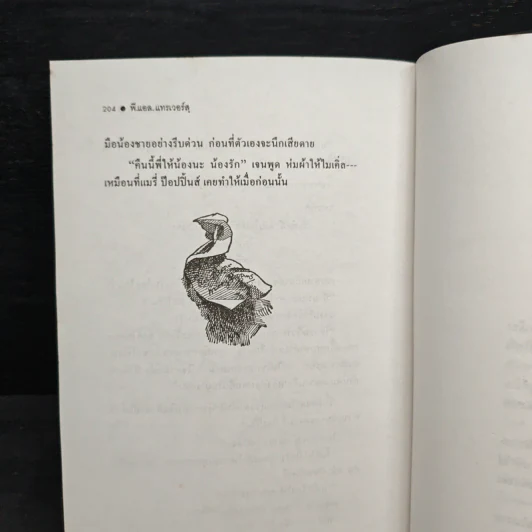 204 ● พี.แอล.แทรเวอร์ส
มือน้องชายอย่างรีบด่วน ก่อนที่ตัวเองจะนึกเสียดาย
“คืนนี้พี่ให้น้องนะ น้องรัก” เจนพูด ห่มผ้าให้ไมเคิ่ล---
เหมือนที่แมรี่ ป๊อปปิ้นส์ เคยทำให้เมื่อก่อนนั้น